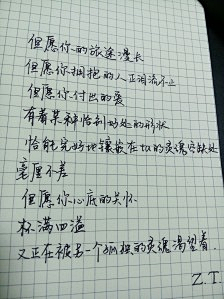 但愿你的旅途漫长
但愿你拥抱的人正泪流不止
但愿你付出的爱
有着某种恰到好处的形状
恰能完好地镶嵌在 的灵魂空缺处
毫厘不差
但愿你心底的关怀
杯满四溢
又正在被另一个孤独的灵魂渴望着.
Z.T